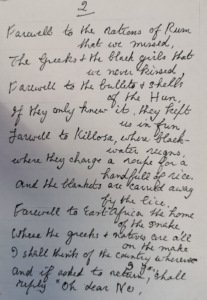 2
Farewell to the nations of Rum
that we missed,
The Greeks & the black girls that
we never kissed,
Farewell to the bullets & shells
of the Hun,
If they only knew it, they kept
us in fun
Farewell to Killosa, where black-
water reigns,
where they charge a rupee for a
handfull of rice.
And the blankets are carried away
by the lice.
Farewell to East Africa the home
of the snake
Where the greeks & natives are all
on the make
I shall think of the country wherever
I go,
and if asked to return, shall
reply "Oh dear No,